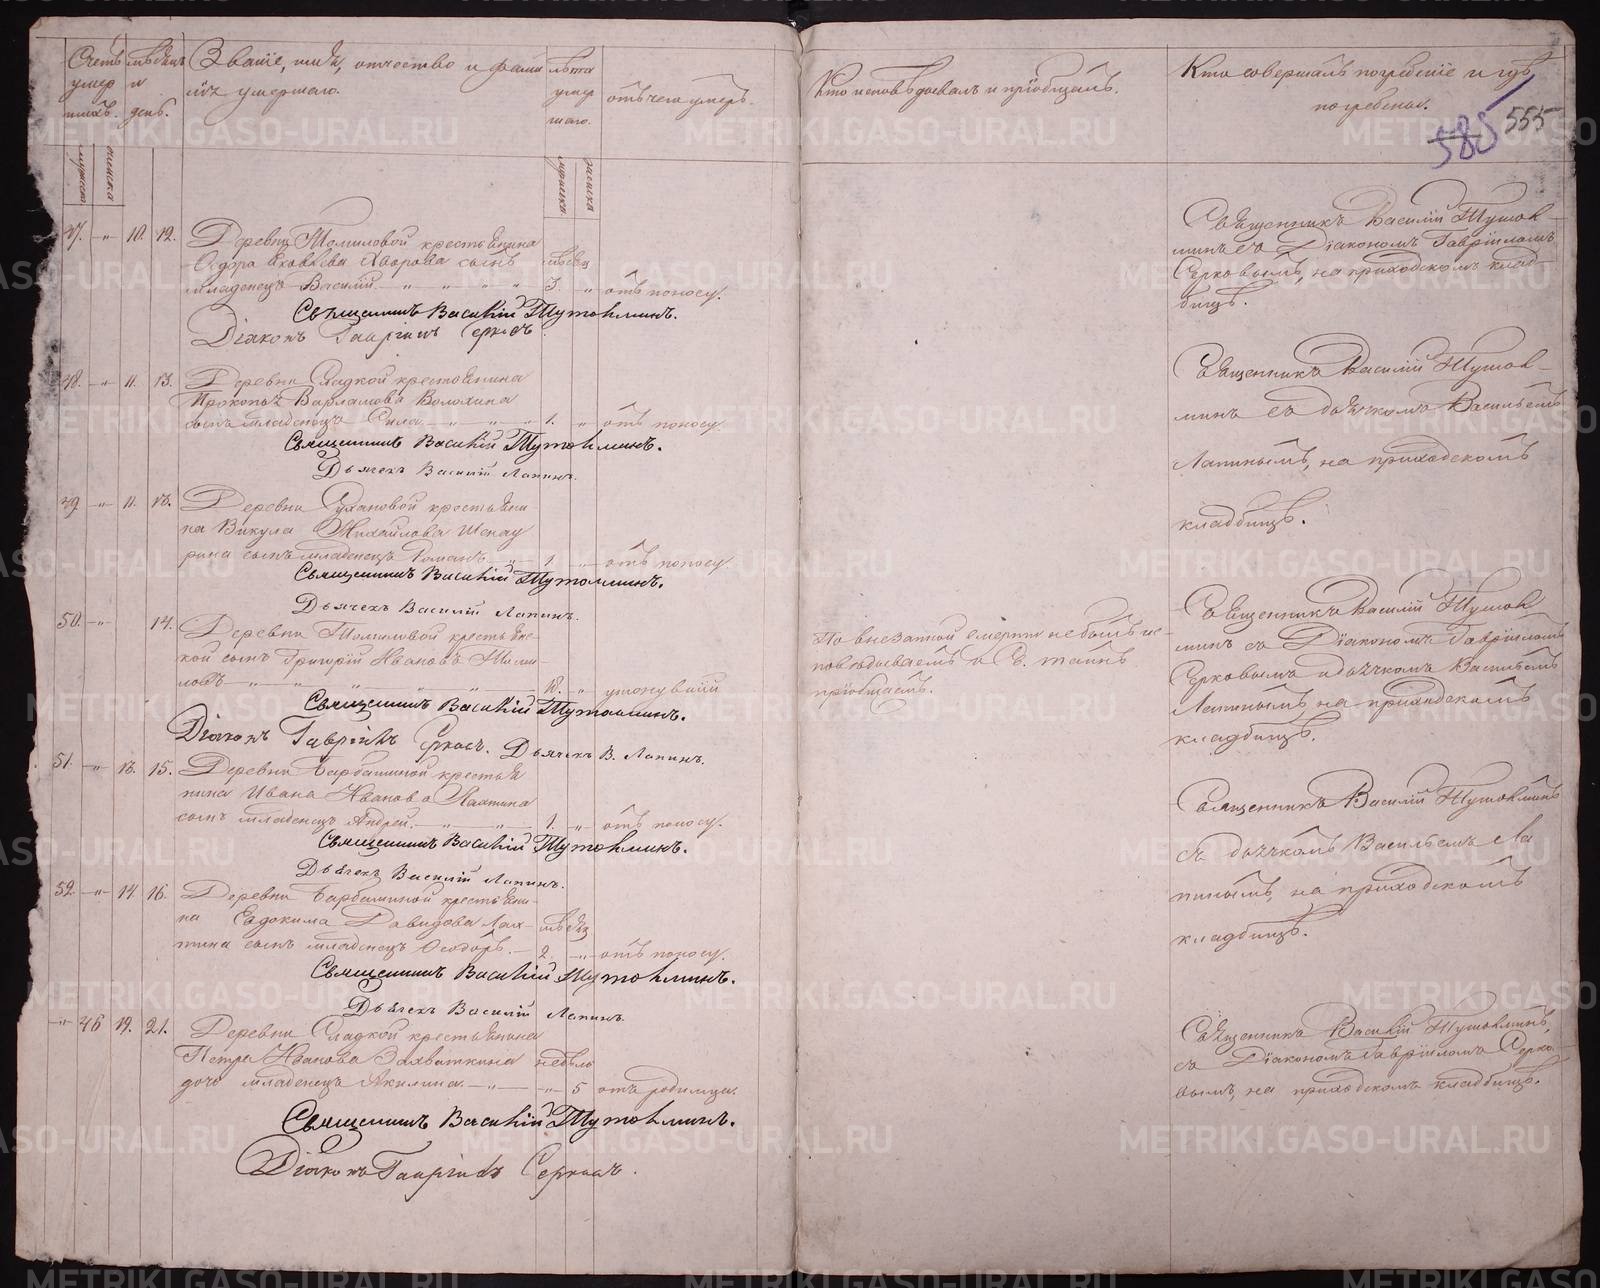 Счетъ умер шихъ.
мѣсяцъ и день.
Званіе, имя, отчество и фами
лія умершаго.
лѣта умер шаго.
отъ чего умеръ.
Кто исповѣдовалъ и пріобщалъ.
Кто совершалъ погребеніе и гдѣ
погребены.
585 555
мужеска
женска
мужеска
женска
47. 10. 12. Деревни Томиловой крестьянина
сынъ мѣсяц
младенецъ Василій 3. отъ поносу.
Священникъ Василій Тутолминъ.
Діаконъ Гавріилъ Серковъ.
Священникъ Василій Тутол
минъ съ Діакономъ Гавріиломъ
Серковымъ, на приходскомъ клад
бищѣ.
48. 11. 13. Деревни Гладкой крестьянина
Прокопья Варламова Волохина
сынъ младенецъ Сила 1. отъ поносу.
Священникъ Василій Тутолминъ.
Дьячекъ Василій Лапинъ.
Священникъ Василій Тутол
минъ съ дьячкомъ Васильемъ
Лапинымъ, на приходскомъ
кладбищѣ.
49 11. 13. Деревни крестьяни
на Викула Михайлова
сынъ младенецъ Романъ 1. отъ поносу.
Священникъ Василій Тутолминъ.
Дьячекъ Василій Лапинъ.
50. 14. Деревни Томиловой крестьянс
кой сынъ Григорій Ивановъ Томи
ловъ 18. утонувшій
Священникъ Василій Тутолминъ.
Діаконъ Гавріилъ Серковъ. Дьячекъ В. Лапинъ.
По внезапной смерти не былъ ис
повѣдываемъ и Св. таинъ
пріобщаемъ.
Священникъ Василій Тутол
минъ съ Діакономъ Гавріиломъ
Серковымъ и дьячкомъ Васильемъ
Лапинымъ, на приходскомъ
кладбищѣ.
51. 13. 15. Деревни Барбашиной крестья
нина Ивана Иванова Лахтина
сынъ младенецъ Андрей 1. отъ поносу.
Священникъ Василій Тутолминъ.
Дьячекъ Василій Лапинъ.
Священникъ Василій Тутолминъ
съ дьячкомъ Васильемъ Ла
пинымъ, на приходскомъ
кладбищѣ.
52. 14 16. Деревни Барбашиной крестьяни
на Евдокима Давидова Лах мѣсяц
тина сынъ младенецъ Ѳеодоръ 2. отъ поносу.
Священникъ Василій Тутолминъ.
Дьячекъ Василій Лапинъ.
46 19. 21. Деревни Гладкой крестьянина
Петра Иванова Захваткина недѣль
дочь младенецъ Акилина 5 отъ родимца.
Священникъ Василій Тутолминъ.
Діаконъ Гавріилъ Серковъ.
Священникъ Василій Тутолминъ,
съ Діакономъ Гавріиломъ Серко
вымъ, на приходскомъ кладбищѣ.